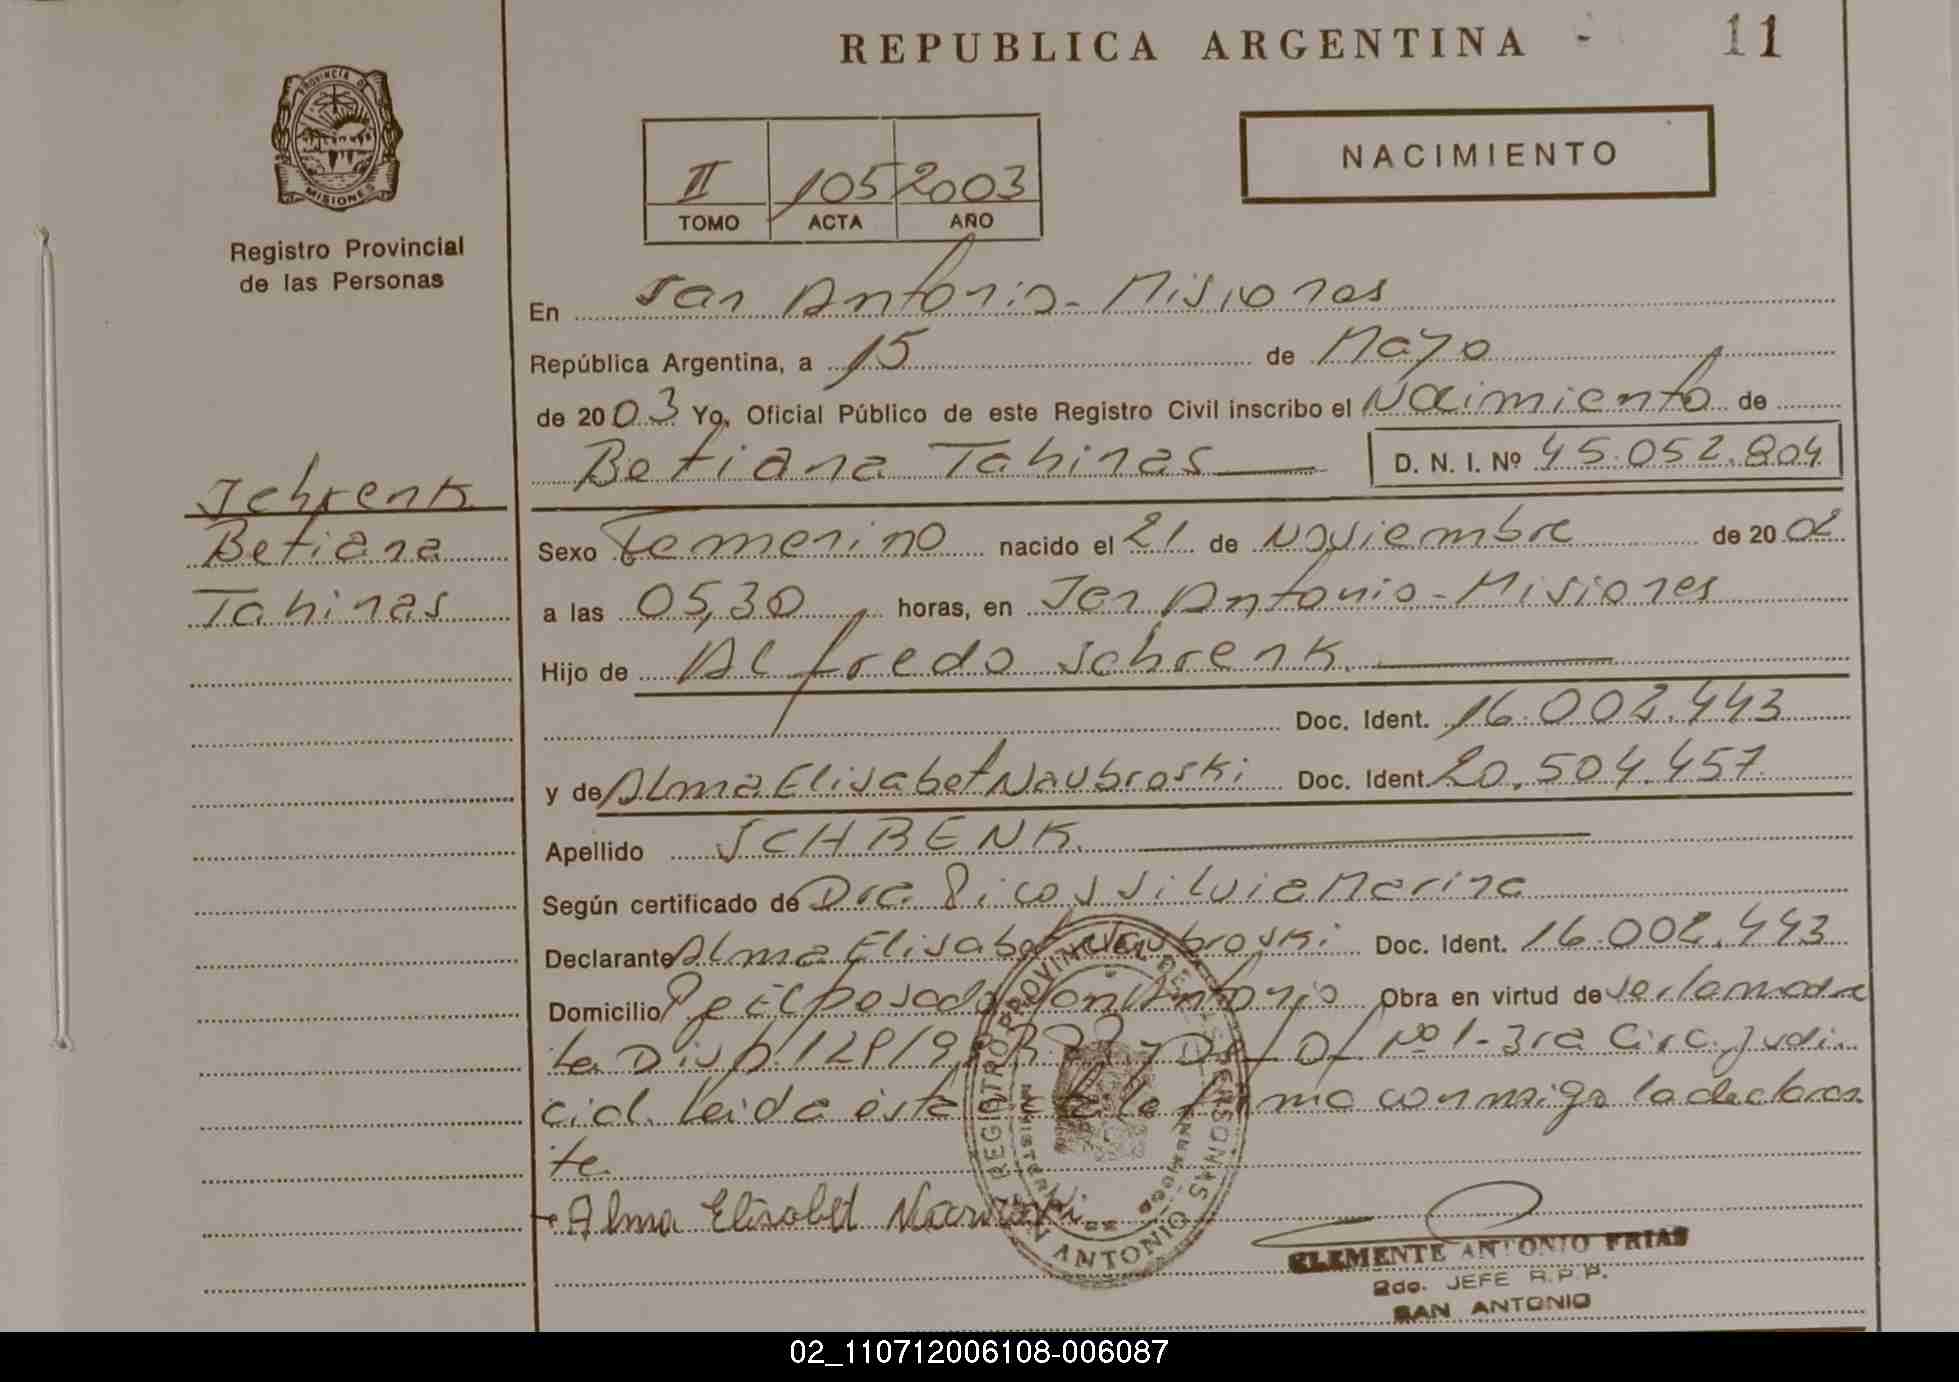 REPUBLICA ARGENTINA - 11
PROVINCIA DE
MISIONES
Registro Provincial
de las Personas
NACIMIENTO
II 105 2003
TOMO ACTA AÑO
En San Antonio - Misiones
República Argentina, a 15 de Mayo
de 2003 Yo, Oficial Público de este Registro Civil inscribo el Nacimiento de
Betiana Tahinas D. N. I. Nº 45.052.804
Schrenk
Betiana
Tahinas
Sexo Femenino nacido el 21 de Noviembre de 2002
a las 05,30 horas, en San Antonio - Misiones
Hijo de Alfredo Schrenk.
Doc. Ident. 16.002.443
y de Alma Elisabet Naubroski Doc. Ident. 20.504.457
Apellido SCHRENK.
Según certificado de Dra. Picos Silvia Marina
Declarante Alma Elisabet Naubroski Doc. Ident. 16.002.443
Domicilio Pje El Posado San Antonio Obra en virtud de ser la madre
te Disp. 128/9 Nº 1 - 3ra Circ. Judi
cial. Leida esta acta la firma conmigo la declaran
te
Alma Elisabet
REGISTRO PROVINCIAL DE LAS PERSONAS
SAN ANTONIO
CLEMENTE ANTONIO FRIAS
2do. JEFE R.P.P.
SAN ANTONIO
02_110712006108-006087